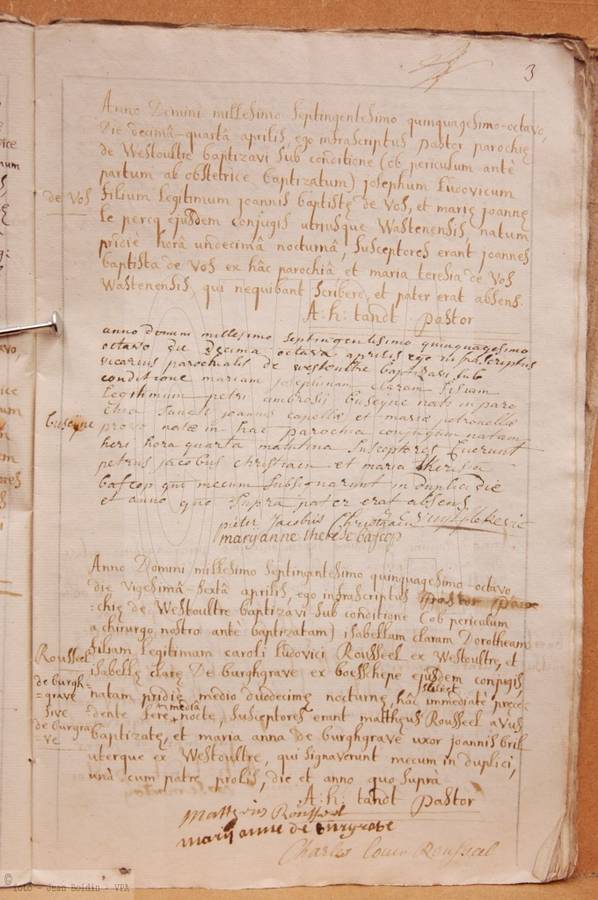 3
Anno Domini millesimo Septingentesimo quinquagesimo-octavo,
Die decimâ-quartâ aprilis, ego infrascriptus pastor parochię
de Westoultre baptizavi sub conditione (ob periculum antè
partum ab obstetrice baptizatum) josephum Ludovicum
de Vos
filium legitimum joannis baptistę de Vos, et marię joannę
le percq ejusdem conjugis utriusque Wastenensis, natum
pridiè horâ undecimâ nocturnâ, susceptores erant joannes
baptista de Vos ex hâc parochiâ et maria teresia de Vos
Wastenensis, qui nequibant scribere, et pater erat absens.
A: h: tandt pastor
anno domini millesimo septingentesimo quinquagesimo
octavo die decima octava aprilis ego infrascriptus
vicarius parochialis de westoultre baptizavi sub
conditione mariam josephinam claram filiam
legitimum petri ambrosii buseyne nati in paro
buseyne
chia sancti joannis capellæ et mariæ petronellæ
natæ in hac parochia conjugum natam
heri hora quarta matutina susceptores fuerunt
petrus jacobus christiaen et maria theresia
bascop qui mecum subsignarunt in duplici die
et anno quo supra pater erat absens
pieter Jacobus Christiaen
maryanne therese bascop
Anno Domini millesimo Septingentesimo quinquagesimo-octavo,
die vigesimâ-sextâ aprilis, ego infrascriptus pastor paro
=chię de Westoultre baptizavi sub conditione (ob periculum
a chirurgo nostro antè baptizatam) isabellam claram Dorotheam
filiam legitimam caroli Ludovici Rousseel ex Westoultre, et
Rousseel
de burgh-
=grave
sive
de burgra
ve
isabellę clarę De burghgrave ex boesschepe ejusdem conjugis,
natam pridiè medio duodecimę nocturnę, hâc immediatè pręce-
dente ferè mediâ nocte, susceptores erant matthęus Rousseel avus
baptizatę, et maria anna de burghgrave uxor joannis bril
uterque ex Westoultre, qui signaverunt mecum in duplici,
unà cum patre prolis, die et anno quo suprà
A: h: tandt pastor
Mattheus Rousseel
mary anne de burgrave
Charles Rousseel
© foto - Jean Boidin - VPA